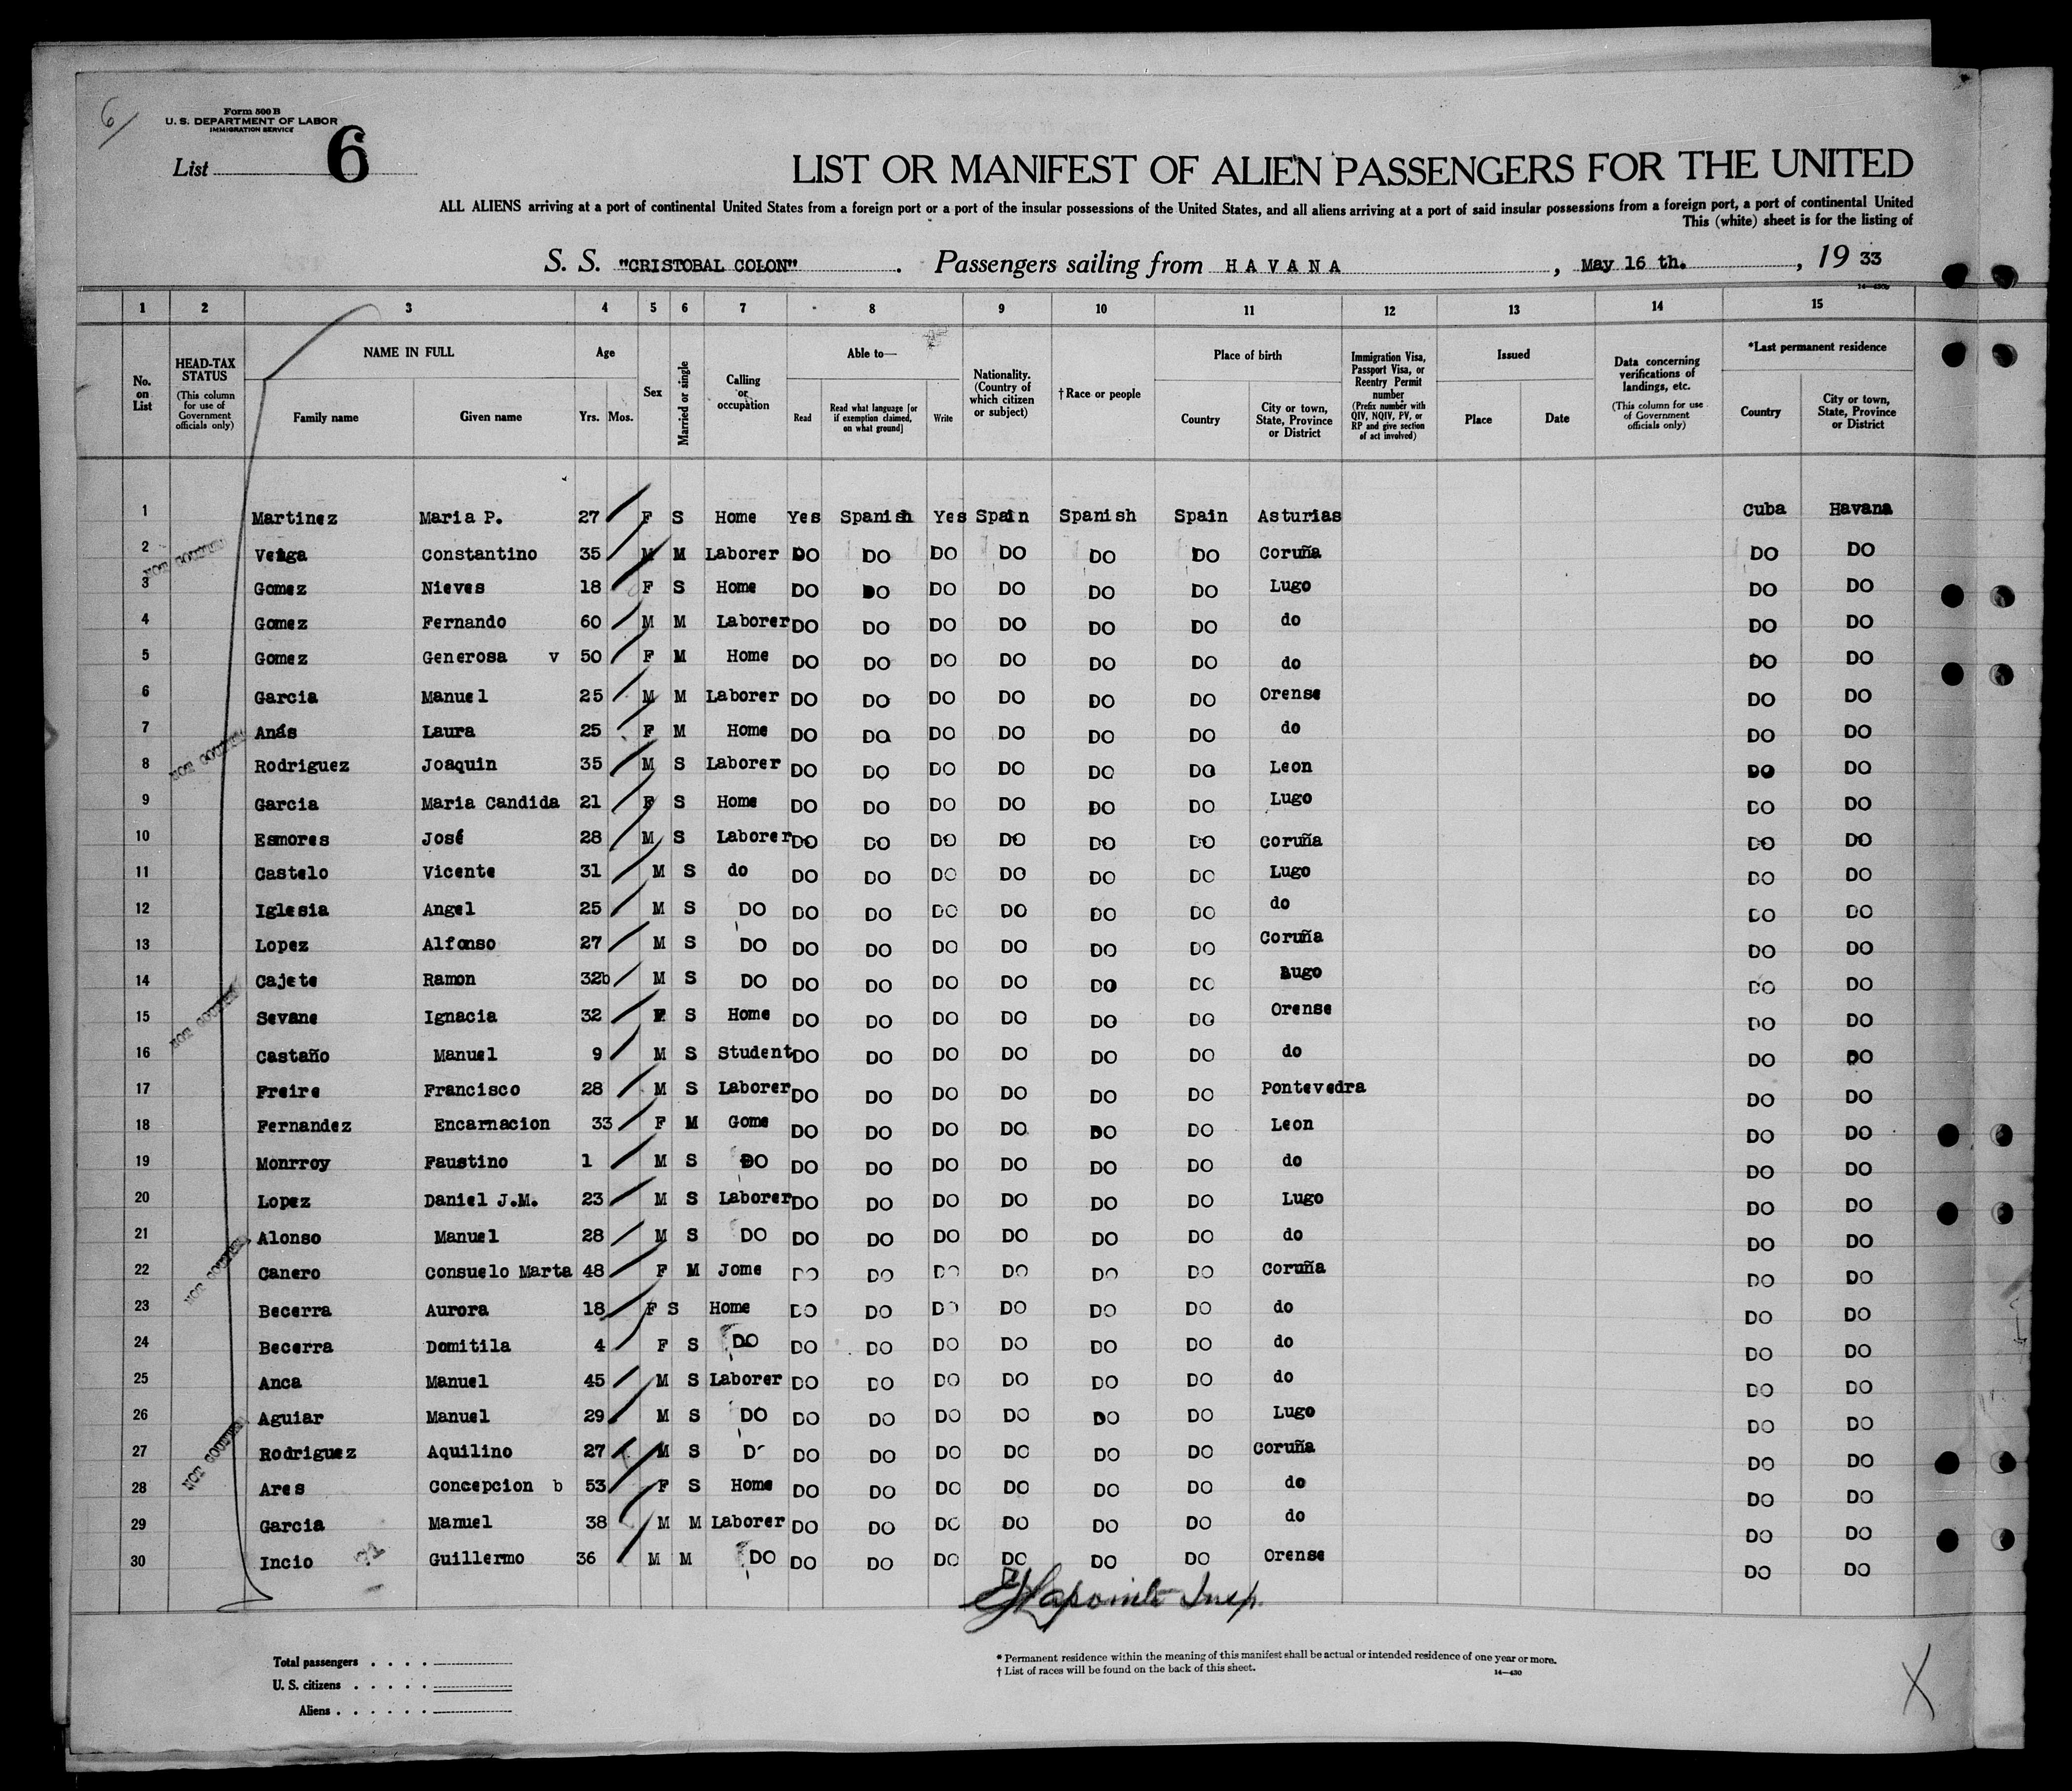 6/
Form 500 B
U. S. DEPARTMENT OF LABOR
IMMIGRATION SERVICE
List 6
LIST OR MANIFEST OF ALIEN PASSENGERS FOR THE UNITED
ALL ALIENS arriving at a port of continental United States from a foreign port or a port of the insular possessions of the United States, and all aliens arriving at a port of said insular possessions from a foreign port, a port of continental United
This (white) sheet is for the listing of
S. S. "CRISTOBAL COLON" . Passengers sailing from HAVANA , May 16 th. , 19 33
1 2 3 4 5 6 7 8 9 10 11 12 13 14 15
No. on List
HEAD-TAX STATUS (This column for use of Government officials only)
NAME IN FULL Family name Given name
Age Yrs. Mos.
Sex
Married or single
Calling or occupation
Able to— Read Read what language [or if exemption claimed, on what ground] Write
Nationality. (Country of which citizen or subject)
†Race or people
Place of birth Country City or town, State, Province or District
Immigration Visa, Passport Visa, or Reentry Permit number (Prefix number with QIV, NQIV, PV, or RP and give section of act involved)
Issued Place Date
Data concerning verifications of landings, etc. (This column for use of Government officials only)
*Last permanent residence Country City or town, State, Province or District
1 Martinez Maria P. 27 F S Home Yes Spanish Yes Spain Spanish Spain Asturias Cuba Havana
2 Veiga Constantino 35 M M Laborer DO DO DO DO DO DO Coruña DO DO
3 Gomez Nieves 18 F S Home DO DO DO DO DO DO Lugo DO DO
4 Gomez Fernando 60 M M Laborer DO DO DO DO DO DO do DO DO
5 Gomez Generosa v 50 F M Home DO DO DO DO DO DO do DO DO
6 Garcia Manuel 25 M M Laborer DO DO DO DO DO DO Orense DO DO
7 Anás Laura 25 F M Home DO DO DO DO DO DO do DO DO
8 Rodriguez Joaquin 35 M S Laborer DO DO DO DO DO DO Leon DO DO
9 Garcia Maria Candida 21 F S Home DO DO DO DO DO DO Lugo DO DO
10 Esmores José 28 M S Laborer DO DO DO DO DO DO Coruña DO DO
11 Castelo Vicente 31 M S do DO DO DO DO DO DO Lugo DO DO
12 Iglesia Angel 25 M S DO DO DO DO DO DO DO do DO DO
13 Lopez Alfonso 27 M S DO DO DO DO DO DO DO Coruña DO DO
14 Cajete Ramon 32b M S DO DO DO DO DO DO DO Lugo DO DO
15 Sevane Ignacia 32 F S Home DO DO DO DO DO DO Orense DO DO
16 Castaño Manuel 9 M S Student DO DO DO DO DO DO do DO DO
17 Freire Francisco 28 M S Laborer DO DO DO DO DO DO Pontevedra DO DO
18 Fernandez Encarnacion 33 F M Gome DO DO DO DO DO DO Leon DO DO
19 Monrroy Faustino 1 M S DO DO DO DO DO DO DO do DO DO
20 Lopez Daniel J.M. 23 M S Laborer DO DO DO DO DO DO Lugo DO DO
21 Alonso Manuel 28 M S DO DO DO DO DO DO DO do DO DO
22 Canero Consuelo Marta 48 F M Jome DO DO DO DO DO DO Coruña DO DO
23 Becerra Aurora 18 F S Home DO DO DO DO DO DO do DO DO
24 Becerra Domitila 4 F S DO DO DO DO DO DO DO do DO DO
25 Anca Manuel 45 M S Laborer DO DO DO DO DO DO do DO DO
26 Aguiar Manuel 29 M S DO DO DO DO DO DO DO Lugo DO DO
27 Rodriguez Aquilino 27 M S D DO DO DO DO DO DO Coruña DO DO
28 Ares Concepcion b 53 F S Home DO DO DO DO DO DO do DO DO
29 Garcia Manuel 38 M M Laborer DO DO DO DO DO DO do DO DO
30 Incio Guillermo 36 M M DO DO DO DO DO DO DO Orense DO DO
Lapointe Insp.
Total passengers . . . .
U. S. citizens . . . . .
Aliens . . . . . .
* Permanent residence within the meaning of this manifest shall be actual or intended residence of one year or more.
† List of races will be found on the back of this sheet.
14—430
X